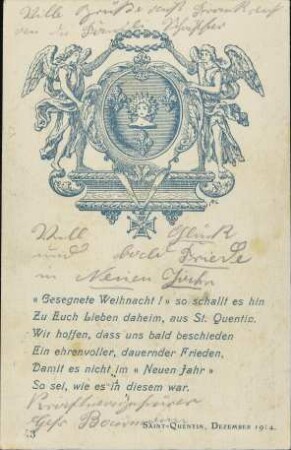 Viele Grüße
von die Familie
Viel Glück
und bald Friede
in Neuen Jahr
« Gesegnete Weihnacht ! » so schallt es hin
Zu Euch Lieben daheim, aus St. Quentin.
Wir hoffen, dass uns bald beschieden
Ein ehrenvoller, dauernder Frieden,
Damit es nicht im « Neuen Jahr »
So sei, wie es in diesem war.
Saint-Quentin, Dezember 1914.